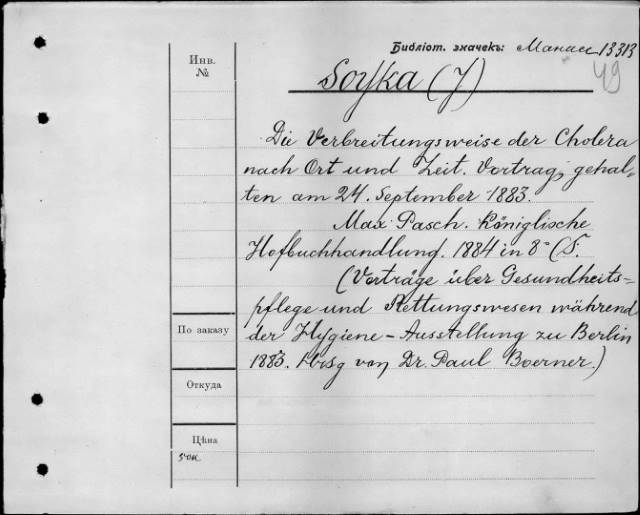 Библіот. значекъ: Манасс 1333
49
Инв.
№
Soyka (J)
Die Verbreitungsweise der Cholera
nach Ort und Zeit. Vortrag, gehal-
ten am 24. September 1883.
Max Pasch. Königlische
Hofbuchhandlung. 1884 in 8° (T.
(Vorträge über Gesundheits-
pflege und Rettungswesen während
der Hygiene-Ausstellung zu Berlin
1883. Hrsg von Dr. Paul Boerner.)
По заказу
Откуда
Цѣна
50к.